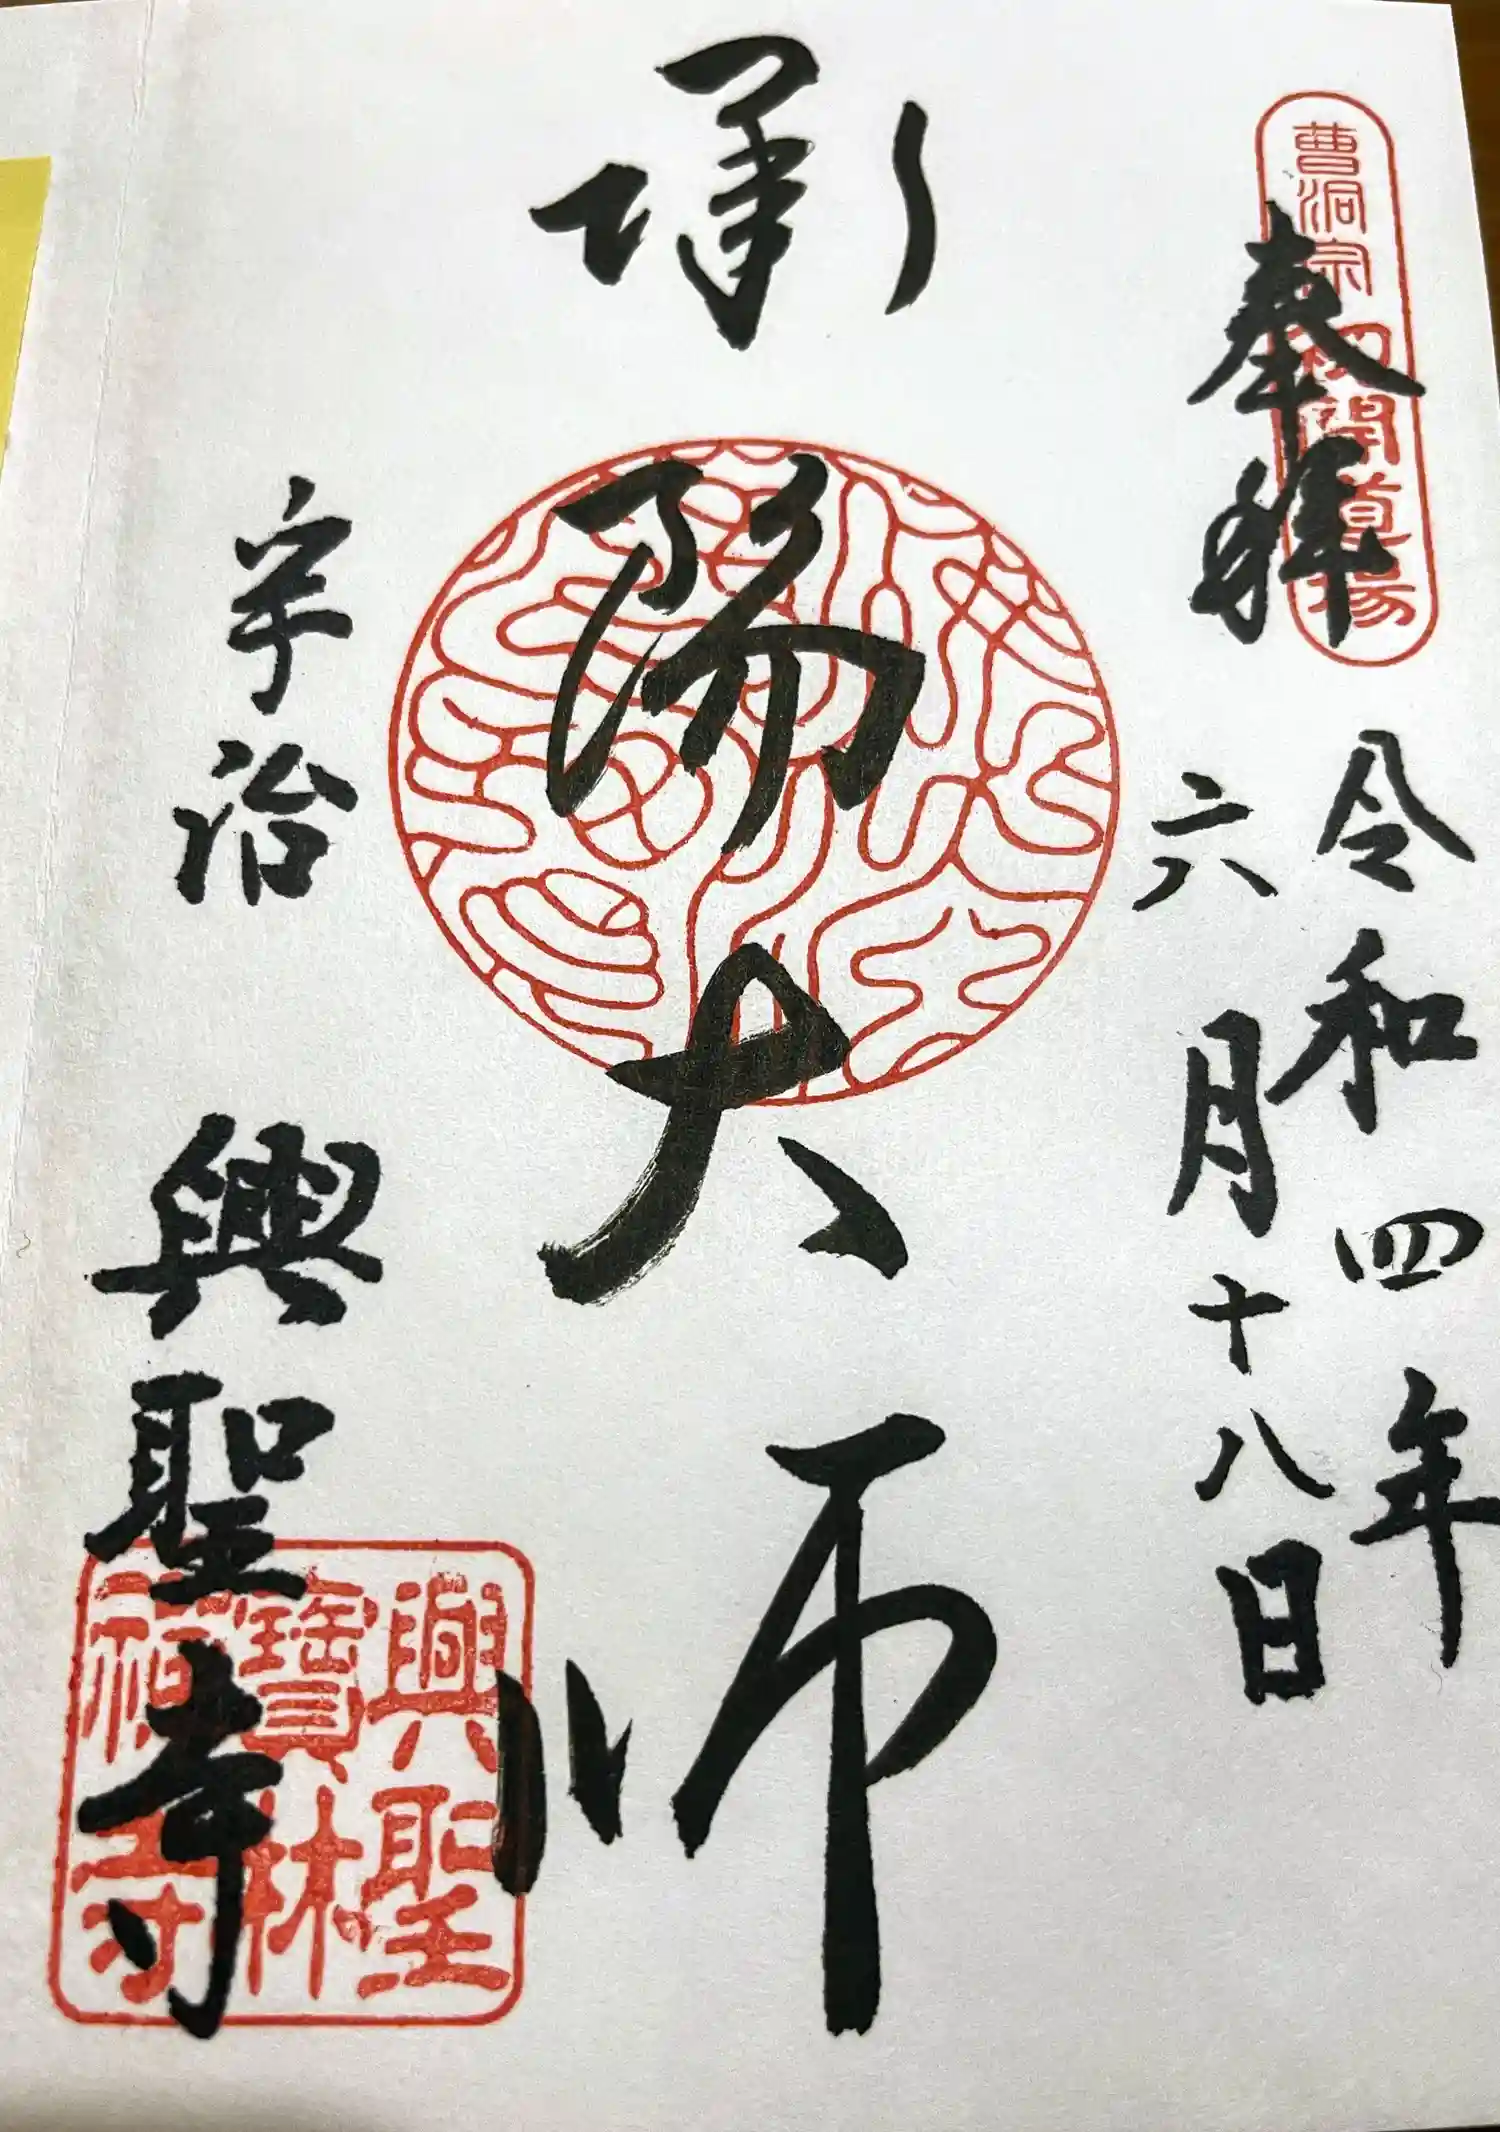 曹洞宗初開道場
奉拜
令和四年
六月十八日
承陽大師
宇治
興聖寺
興聖
寶林
禅寺